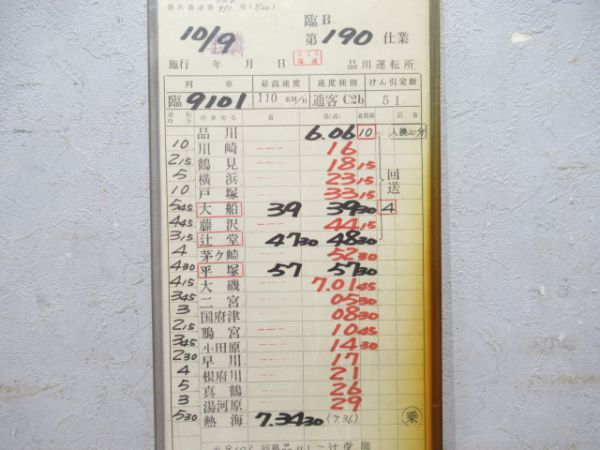 臨B
10/9
第 190 仕業
施行 年 月 日 品川運転所
列車 最高速度 速度種別 けん引定数
臨 9101 110 KM/H 通客C2b 51
運転時分 停車場名 着 発(通) 着発線 記事
品川 6.06 10 入換20分
10 川崎 16
2 15 鶴見 18 15
5 横浜 23 15 回送
10 戸塚 33 15
5 45 大船 39 39 30 4
4 45 藤沢 44 15
3 15 辻堂 47 30 48 30
4 茅ヶ崎 52 30
4 30 平塚 57 57 30
4 15 大磯 7.01 45
3 45 二宮 05 30
3 国府津 08 30
2 15 鴨宮 10 45
3 45 小田原 14 30
2 30 早川 17
4 根府川 21
5 真鶴 26
3 湯河原 29
5 30 熱海 7.34 30 (7.36) 乗